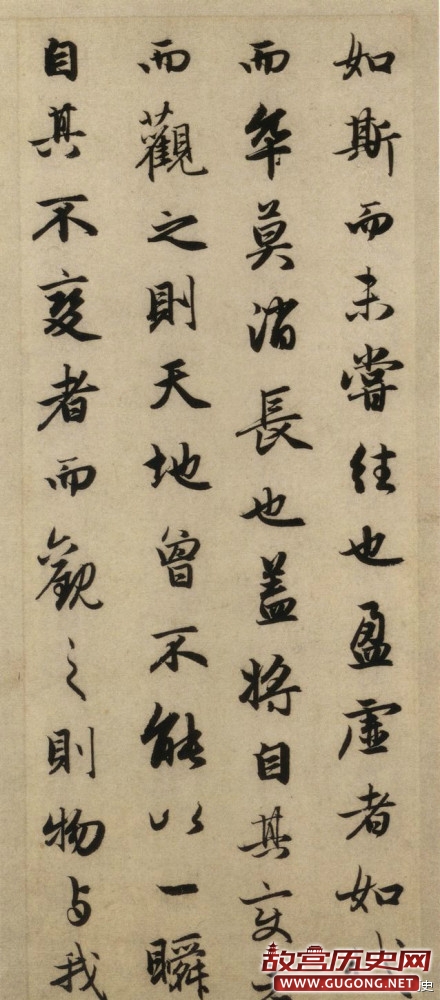 如斯而未嘗往也盈虛者如
而卒莫消長也蓋將自其変
而觀之則天地曾不能以一瞬
自其不變者而觀之則物与我
故宫历史网
WWW.GUGONG.NET
史